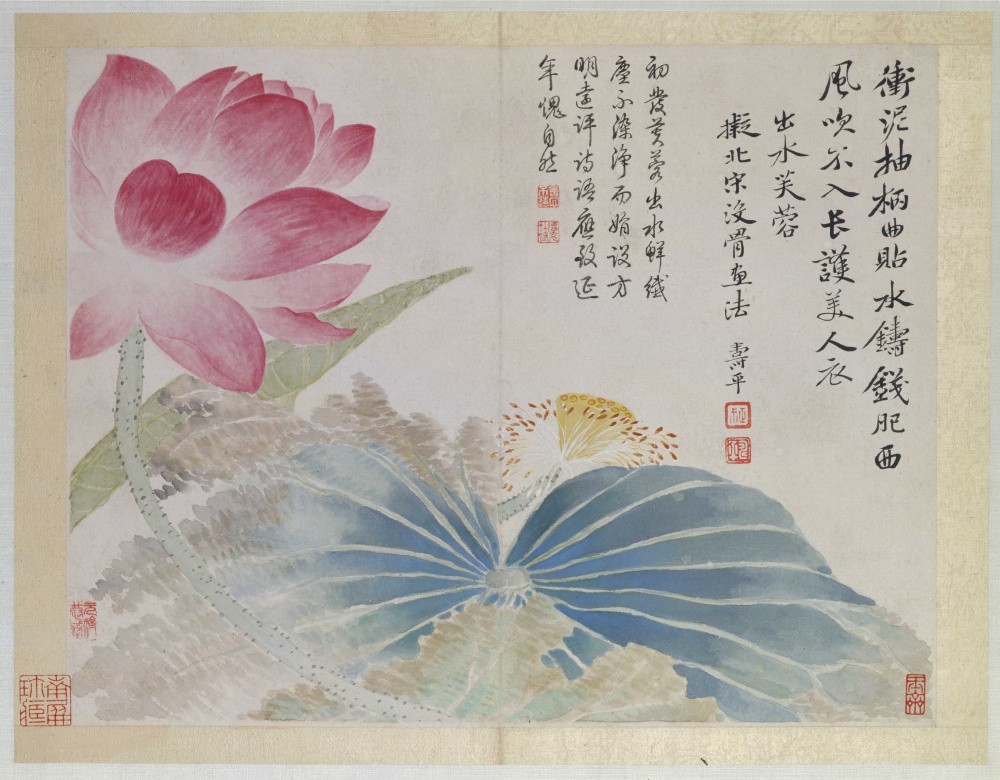 衝泥抽柄曲貼水鑄錢肥西
風吹不入長護美人衣
出水芙蓉
擬北宋沒骨畫法 壽平
初發芙蓉出水鮮纖
塵不染淨而娟設方
明遠評詩語應致延
年愧自然